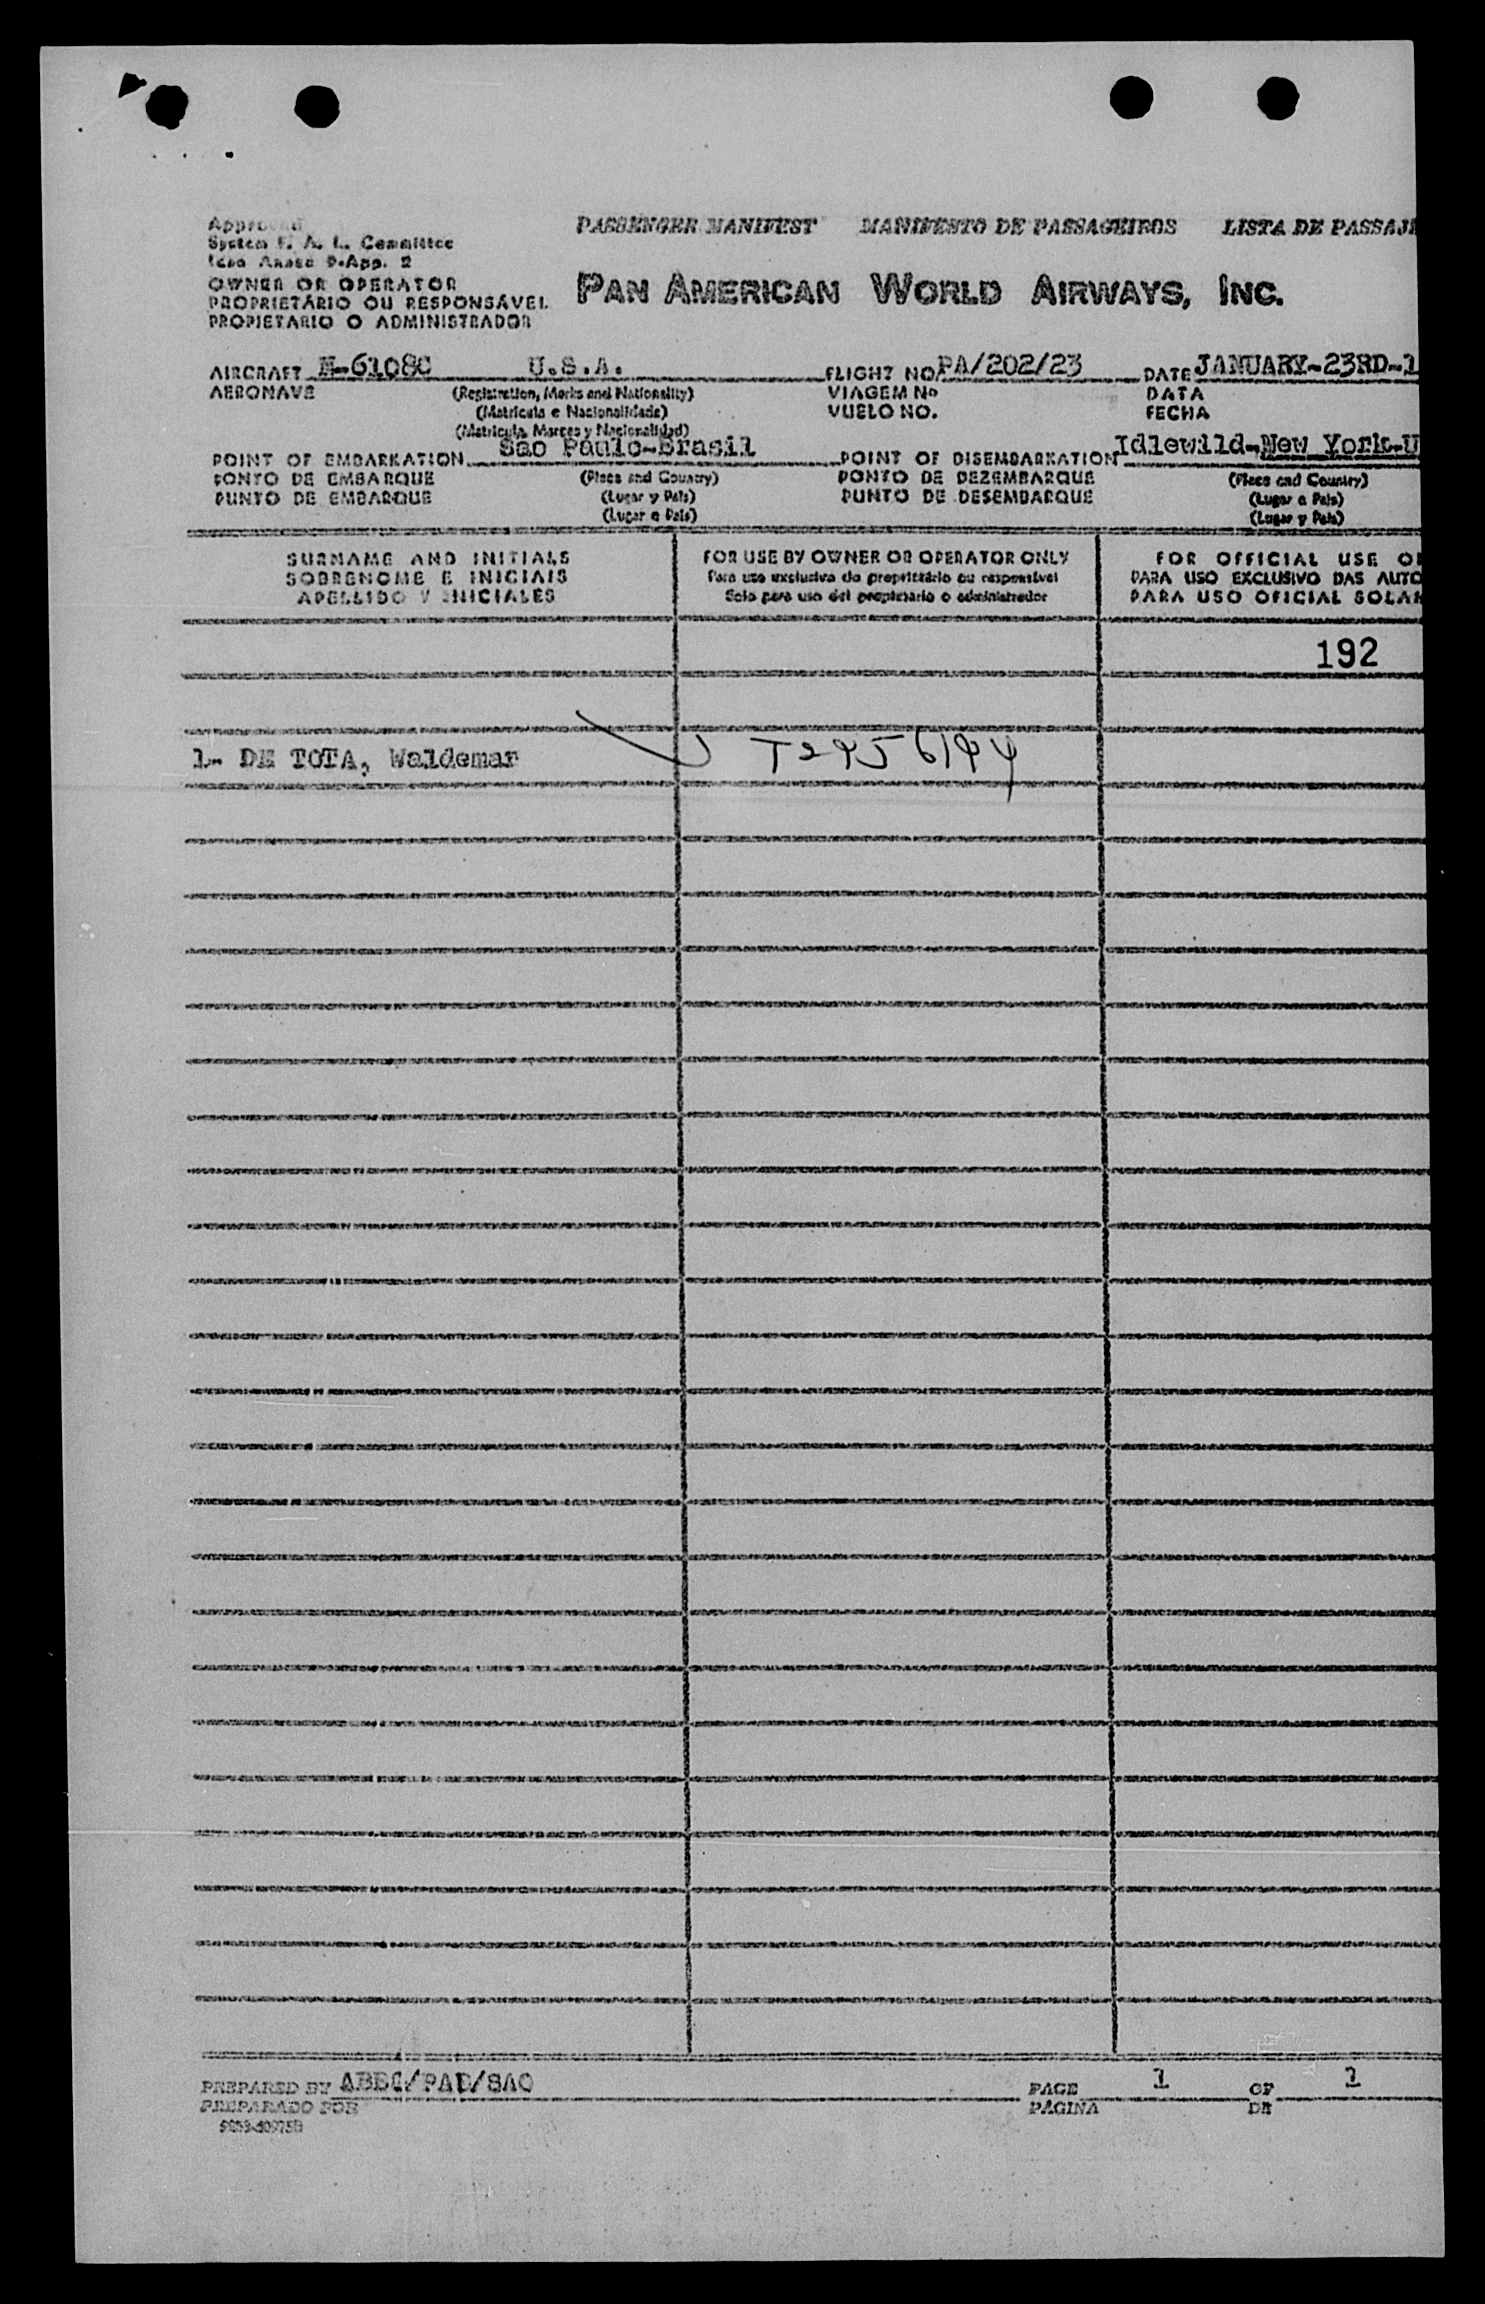 PASSENGER MANIFEST MANIFESTO DE PASSAGEIROS LISTA DE PASSAJE
Approved
System F. A. L. Committee
Icao Annex 9-App. 2
OWNER OR OPERATOR
PROPRIETÁRIO OU RESPONSÁVEL
PROPIETARIO O ADMINISTRADOR
PAN AMERICAN WORLD AIRWAYS, INC.
AIRCRAFT N-6108C U.S.A. FLIGHT NO. PA/202/23 DATE JANUARY-23RD-1
AERONAVE (Registration, Marks and Nationality) VIAGEM No DATA
(Matrícula e Nacionalidade) VUELO NO. FECHA
(Matrícula, Marcas y Nacionalidad)
POINT OF EMBARKATION Sao Paulo-Brasil POINT OF DISEMBARKATION Idlewild-New York-U
PONTO DE EMBARQUE (Place and Country) PONTO DE DEZEMBARQUE (Place and Country)
PUNTO DE EMBARQUE (Lugar y País) PUNTO DE DESEMBARQUE (Lugar e País)
(Lugar e País) (Lugar y País)
SURNAME AND INITIALS FOR USE BY OWNER OR OPERATOR ONLY FOR OFFICIAL USE ON
SOBRENOME E INICIAIS Para uso exclusivo do proprietário ou responsível PARA USO EXCLUSIVO DAS AUTO
APELLIDO Y INICIALES Solo para uso del propietario o administrador PARA USO OFICIAL SOLAM
192
1- DE TOTA, Waldemar T2956194
PREPARED BY ABEC/PAB/SAO PAGE 1 OF 1
PREPARADO POR PÁGINA DE